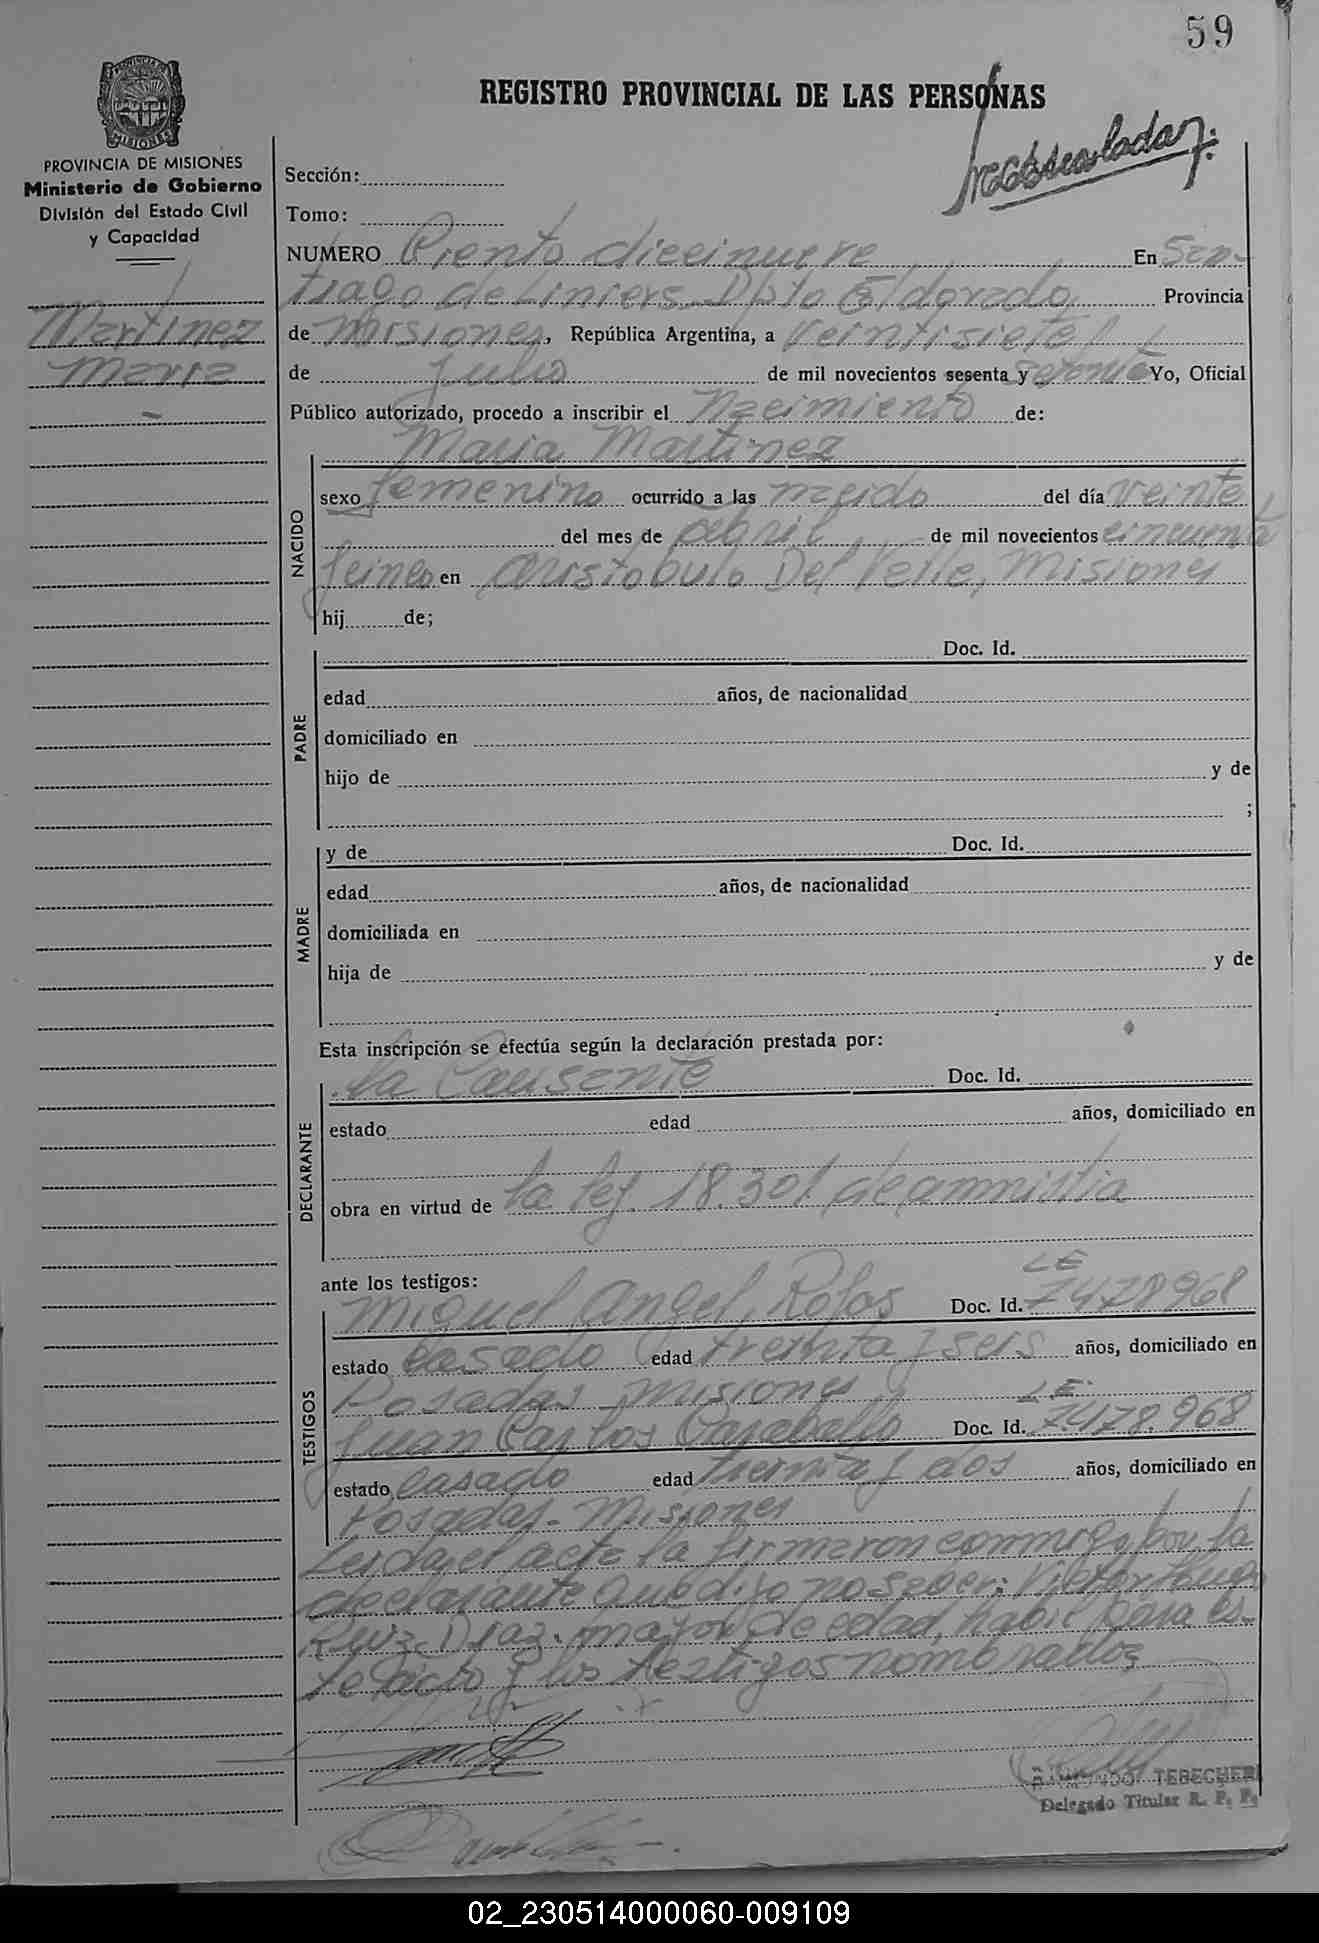 59
REGISTRO PROVINCIAL DE LAS PERSONAS
PROVINCIA DE MISIONES
Ministerio de Gobierno
División del Estado Civil
y Capacidad
Martinez
Maria
Sección:
Tomo:
NUMERO Ciento diecinueve En San-
tiago de Liniers Dpto Eldorado Provincia
de Misiones, República Argentina, a veintisiete
de Julio de mil novecientos sesenta y setenta Yo, Oficial
Público autorizado, procedo a inscribir el Nacimiento de:
Maria Martinez
NACIDO
sexo femenino ocurrido a las del día veinte
del mes de abril de mil novecientos cincuenta
y cinco en Aristobulo Del Valle, Misiones
hij de;
Doc. Id.
PADRE
edad años, de nacionalidad
domiciliado en
hijo de y de
;
MADRE
y de Doc. Id.
edad años, de nacionalidad
domiciliada en
hija de y de
Esta inscripción se efectúa según la declaración prestada por:
La Causante Doc. Id.
DECLARANTE
estado edad años, domiciliado en
obra en virtud de la ley 18.301 de amnistia
ante los testigos:
LE
Miguel Angel Rojas Doc. Id. 7478968
TESTIGOS
estado casado edad treinta y seis años, domiciliado en
Posadas Misiones LE
Juan Carlos Caraballo Doc. Id. 7478.968
estado casado edad treinta y dos años, domiciliado en
Posadas - Misiones
Leida el acta la firmaron conmigo por la
declarante que dijo no saber: Victor Hugo
Ruiz Diaz. mayor de edad, habil para es-
te acto y los testigos nombrados
RAIMUNDO TEBECHERI
Delegado Titular R. P. P.
02_230514000060-009109